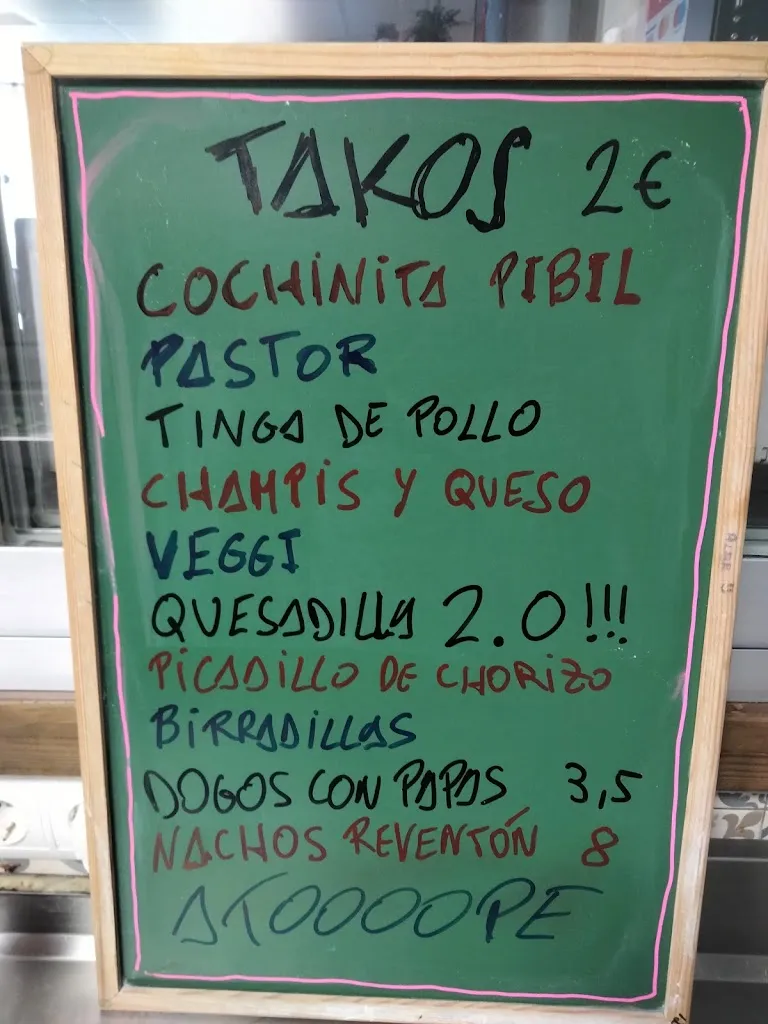 TAKOS 2€
COCHINITA PIBIL
PASTOR
TINGA DE POLLO
CHAMPIS Y QUESO
VEGGI
QUESADILLA 2.0!!!
PICADILLO DE CHORIZO
BIRRADILLAS
DOGOS CON PAPAS 3,5
NACHOS REVENTÓN 8
ATOOOOPE